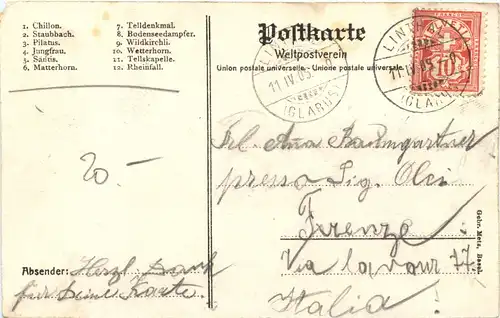 1. Chillon.
2. Staubbach.
3. Pilatus.
4. Jungfrau.
5. Säntis.
6. Matterhorn.
7. Telldenkmal.
8. Bodenseedampfer.
9. Wildkirchli.
10. Wetterhorn.
11. Tellskapelle.
12. Rheinfall.
Postkarte
Weltpostverein
Union postale universelle. - Unione postale universale.
11. IV. 05.
(GLARUS)
LINTH
11. IV. 05.
(GLARUS)
10
20.-
Frl. Anna Baumgartner
presso Sig. Olci
Firenze.
Via Cavour 77.
Italia!
Absender: Herzl. Dank
für Deine Karte.
Gebr. Metz, Basel.